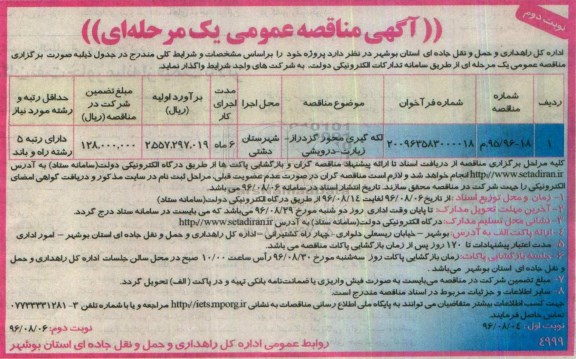 نوبت دوم
((آگهی مناقصه عمومی یک مرحله‌ای))
اداره کل راهداری و حمل و نقل جاده ای استان بوشهر در نظر دارد پروژه خود را براساس مشخصات و شرایط کلی مندرج در جدول ذیل به صورت برگزاری
مناقصه عمومی یک مرحله ای از طریق سامانه تدارکات الکترونیکی دولت، به شرکت های واجد شرایط واگذار نماید.
ردیف شماره مناقصه شماره فراخوان موضوع مناقصه محل اجرا مدت اجرای کار برآورد اولیه (ریال) مبلغ تضمین شرکت در مناقصه (ریال) حداقل رتبه و رشته مورد نیاز
۱ ۹۵/۹۶-۱۸م ۲۰۰۹۶۳۵۸۳۰۰۰۰۱۸ لکه گیری محور گزدراز- زیارت-درویشی شهرستان دشتی ۶ ماه ۲۵۵۷۲۹۷۰۱۹ ۱۲۸.۰۰۰.۰۰۰ دارای رتبه ۵ رشته راه و باند
کلیه مراحل برگزاری مناقصه از دریافت اسناد تا ارائه پیشنهاد مناقصه گران و بازگشایی پاکت ها از طریق درگاه الکترونیکی دولت(سامانه ستاد) به آدرس
http://www.setadiran.ir انجام خواهد شد و لازم است مناقصه گران در صورت عدم عضویت قبلی، مراحل ثبت نام در سایت مذکور و دریافت گواهی امضای
الکترونیکی را جهت شرکت در مناقصه محقق سازند. تاریخ انتشار اسناد در سامانه ۹۶/۰۸/۰۶ می باشد.
۱- زمان و محل توزیع اسناد: از تاریخ ۹۶/۰۸/۰۶ لغایت ۹۶/۰۸/۱۴ از طریق درگاه الکترونیکی دولت(سامانه ستاد)
۲- آخرین مهلت تحویل مدارک: تا پایان وقت اداری روز دو شنبه مورخ ۹۶/۰۸/۲۹ می باشد که می بایست در سامانه ستاد درج گردد.
۳- نشانی محل تسلیم مدارک: درگاه الکترونیکی دولت(سامانه ستاد) به آدرس http://www.setadiran.ir
۴- ارائه پاکت الف به آدرس: بوشهر - خیابان رییسعلی دلواری- چهار راه کشتیرانی -اداره کل راهداری و حمل و نقل جاده ای استان بوشهر - امور اداری
۵- مدت اعتبار پیشنهادات تا ۱۷۰ روز پس از زمان بازگشایی پاکات مناقصه می باشد.
۶- جلسه بازگشایی پاکات: زمان بازگشایی پاکات روز سه شنبه مورخ ۹۶/۰۸/۳۰ رأس ساعت ۱۰/۰۰ صبح در محل سالن جلسات اداره کل راهداری و حمل
و نقل جاده ای استان بوشهر می‌باشد.
۷- مبلغ تضمین شرکت در مناقصه می‌بایست به صورت فیش واریزی یا ضمانت‌نامه بانکی تهیه و در پاکت (الف) تحویل گردد.
۸- سایر اطلاعات و جزئیات مربوط در اسناد مناقصه مندرج است.
جهت کسب اطلاعات بیشتر متقاضیان می توانند به پایگاه ملی اطلاع رسانی مناقصات به نشانی http://iets.mporg.ir مراجعه و یا با شماره تلفن ۳-۰۷۷۳۳۳۳۱۲۸۱
تماس حاصل فرمایند.
نوبت اول: ۹۶/۰۸/۰۴ نوبت دوم: ۹۶/۰۸/۰۶
۴۹۹۹ روابط عمومی اداره کل راهداری و حمل و نقل جاده ای استان بوشهر